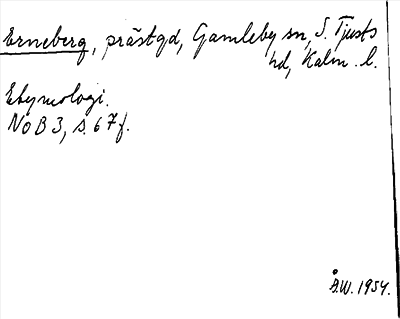 Erneberg, prästgd, Gamleby sn, S. Tjusts
hd, Kalm. l.
Etymologi.
NoB 3, s. 67 f.
Å.W. 1954.